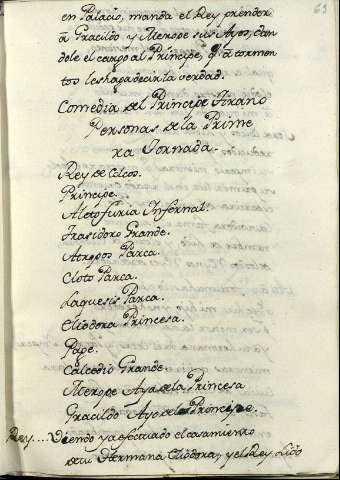 63
en Palacio, manda el Rey prender
a Gracildo y Merope sus Ayos, dan
dole el cargo al Principe, q̃ a tormen
tos les haga decir la verdad.
Comedia del Principe tirano
Personas de la Prime
ra Jornada.
Rey de Colcos.
Principe.
Aleto furia Infernal.
Trasidoro Grande.
Atropos Parca.
Cloto Parca.
Laquesis Parca.
Eliodora Princesa.
Page.
Calcedio Grande.
Merope Aya de la Princesa
Gracildo Ayo de la Principe.
Rey.... Viendo ya efectuado el casamiento
de tu Hermana Eliodora, y el Rey Lido